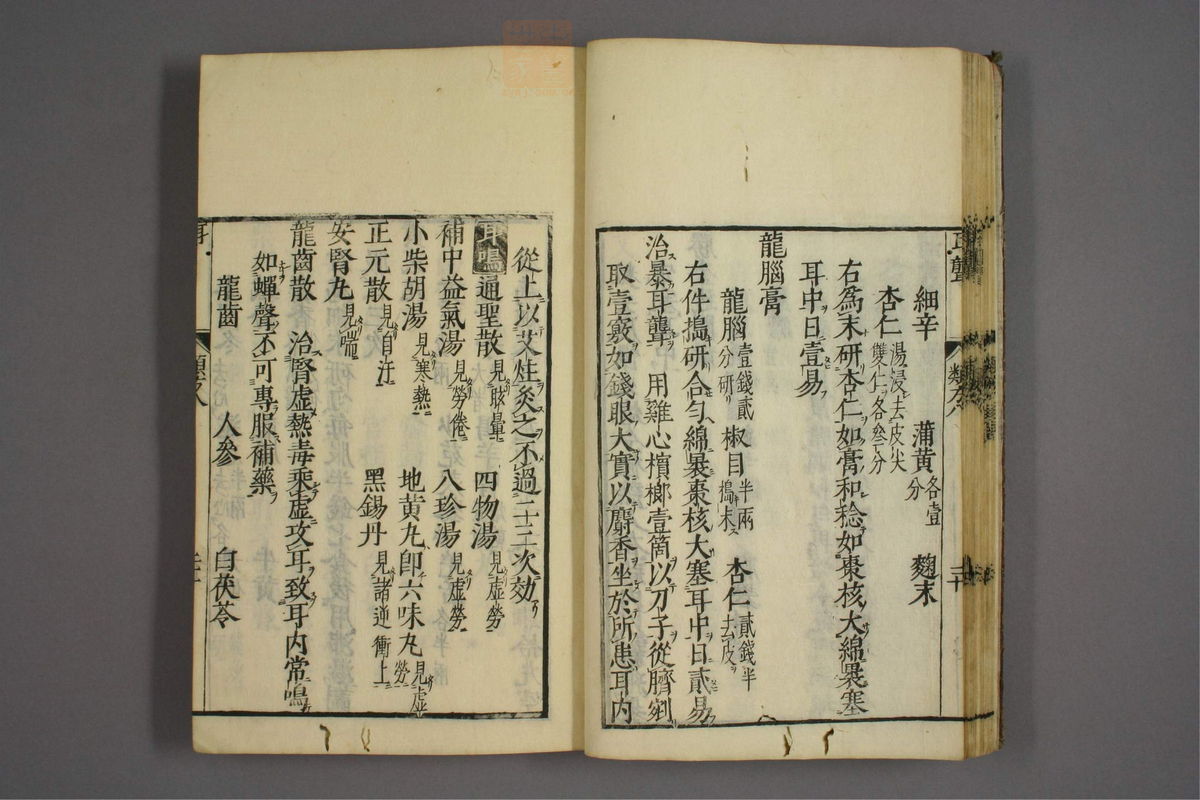 細辛　蒲黃各壹分　麴末
杏仁湯浸去皮尖雙仁各叁分
右爲末研杏仁如膏和稔如棗核大綿褁塞
耳中日壹易
龍腦膏
龍腦壹錢貳分研　椒目半兩搗末　杏仁貳錢半去皮
右件搗研合勻綿褁棗核大塞耳中日貳易
治暴耳聾　用雞心檳榔壹箇以刀子從臍剜
取壹竅如錢眼大實以麝香坐於所患耳內
從上以艾炷灸之不過二三次効
耳鳴　通聖散見眩暈　四物湯見虛勞
補中益氣湯見勞倦　八珍湯見虛勞
小柴胡湯見寒熱　地黃丸卽六味丸見虛勞
正元散見自汗　黑錫丹見諸逆衝上
安腎丸見喘
龍齒散　治腎虛熱毒乘虛攻耳致耳內常鳴
如蟬聲不可專服補藥
龍齒　人參　白茯苓